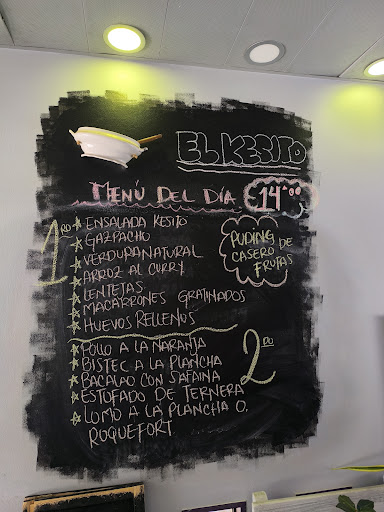 EL KESITO
MENÚ DEL DÍA €14'00
1RO
★ ENSALADA KESITO
★ GAZPACHO
★ VERDURA NATURAL
★ ARROZ AL CURRY
★ LENTETAS
★ MACARRONES GRATINADOS
★ HUEVOS RELLENOS
PUDING DE
CASERO
FRUTAS
2DO
★ POLLO A LA NARANJA
★ BISTEC A LA PLANCHA
★ BACALAO CON SAFAINA
★ ESTOFADO DE TERNERA
★ LOMO A LA PLANCHA O.
ROQUEFORT